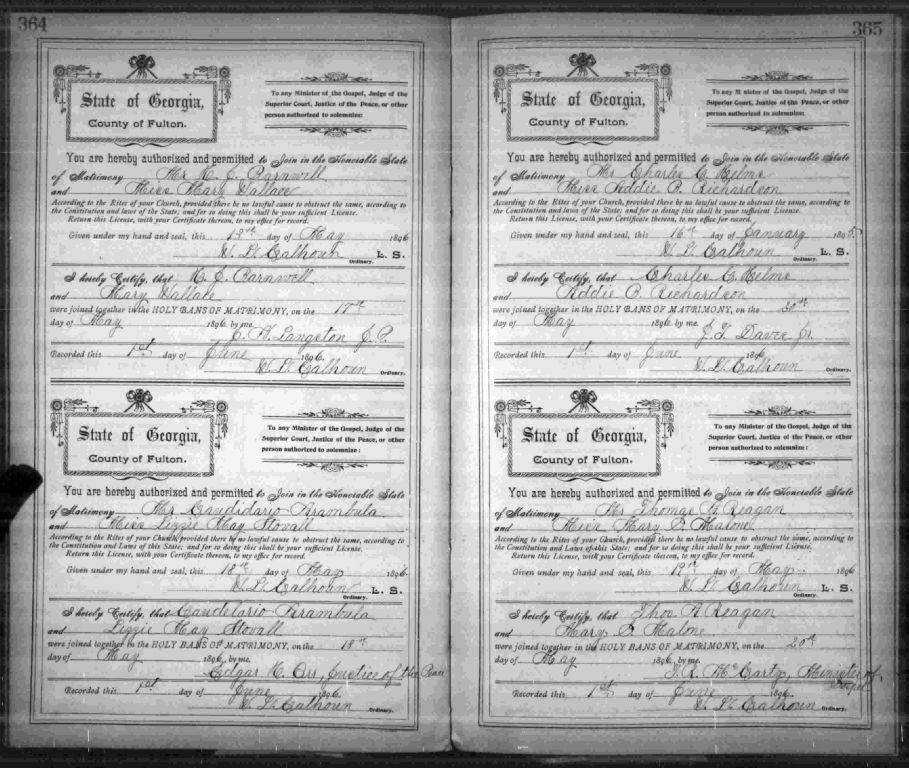 364
State of Georgia,
County of Fulton.
To any Minister of the Gospel, Judge of the
Superior Court, Justice of the Peace, or other
person authorized to solemnize:
You are hereby authorized and permitted to Join in the Honorable State
of Matrimony Mr C. Barnwell
and Miss Mary Wallace
According to the Rites of your Church, provided there be no lawful cause to obstruct the same, according to
the Constitution and laws of the State; and for so doing this shall be your sufficient License.
Return this License, with your Certificate thereon, to my office for record.
Given under my hand and seal, this day of May 1896
Calhoun L. S.
Ordinary.
I hereby Certify, that Barnwell
and Mary Wallace
were joined together in the HOLY BANS OF MATRIMONY, on the 17th
day of May 1896 by me.
Langston J. P.
Recorded this 1st day of June 1896.
Calhoun Ordinary.
State of Georgia,
County of Fulton.
To any Minister of the Gospel, Judge of the
Superior Court, Justice of the Peace, or other
person authorized to solemnize:
You are hereby authorized and permitted to Join in the Honorable State
of Matrimony Mr Candidario Arambula
and Miss Lizzie May Stovall
According to the Rites of your Church, provided there be no lawful cause to obstruct the same, according to
the Constitution and Laws of this State; and for so doing this shall be your sufficient License.
Return this License, with your Certificate thereon, to my office for record.
Given under my hand and seal, this 18th day of May 1896
Calhoun L. S.
Ordinary.
I hereby Certify, that Candelario Arambula
and Lizzie May Stovall
were joined together in the HOLY BANS OF MATRIMONY, on the 18th
day of May 1896, by me.
Edgar H. Orr, Justice of the Peace
Recorded this 1st day of June 1896.
Calhoun Ordinary.
365
State of Georgia,
County of Fulton.
To any Minister of the Gospel, Judge of the
Superior Court, Justice of the Peace, or other
person authorized to solemnize:
You are hereby authorized and permitted to Join in the Honorable State
of Matrimony Mr Charles C. Helms
and Miss Addie B. Richardson
According to the Rites of your Church, provided there be no lawful cause to obstruct the same, according to
the Constitution and laws of the State; and for so doing this shall be your sufficient License.
Return this License, with your Certificate thereon, to my office for record.
Given under my hand and seal, this 16th day of January
Calhoun L. S.
Ordinary.
I hereby Certify, that Charles C. Helms
and Addie B. Richardson
were joined together in the HOLY BANS OF MATRIMONY, on the 20th
day of May 1896 by me.
J. T. Davee Jr.
Recorded this 1st day of June 1896
Calhoun Ordinary.
State of Georgia,
County of Fulton.
To any Minister of the Gospel, Judge of the
Superior Court, Justice of the Peace, or other
person authorized to solemnize:
You are hereby authorized and permitted to Join in the Honorable State
of Matrimony Mr Thomas H. Reagan
and Miss Mary Malone
According to the Rites of your Church, provided there be no lawful cause to obstruct the same, according to
the Constitution and Laws of this State; and for so doing this shall be your sufficient License.
Return this License, with your Certificate thereon, to my office for record.
Given under my hand and seal, this 19th day of May 1896
Calhoun L. S.
Ordinary.
I hereby Certify, that Thos H Reagan
and Mary Malone
were joined together in the HOLY BANS OF MATRIMONY, on the 20th
day of May 1896, by me.
McCarty, Minister of
Gospel
Recorded this 1st day of June 1896.
Calhoun Ordinary.